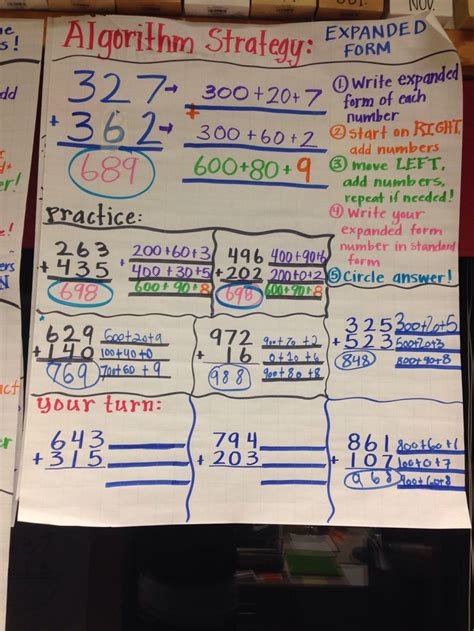 NOV.
Algorithm Strategy: EXPANDED FORM
327→ 300+20+7
+ 362→ + 300+60+2
689 600+80+9
① Write expanded
form of each
number
② start on RIGHT,
add numbers
③ move LEFT,
add numbers,
repeat if needed!
④ Write your
expanded form
number in standard
form
⑤ Circle answer!
Practice:
263 200+60+3
+ 435 400+30+5
698 600+90+8
496 400+90+6
+ 202 200+0+2
698 600+90+8
629 600+20+9
+ 140 100+40+0
769 700+60+9
972 900+70+2
+ 16 0+10+6
988 900+80+8
325 300+20+5
+ 523 500+20+3
848 800+40+8
your turn:
643
+ 315
794
+ 203
861 800+60+1
+ 107 100+0+7
968 900+60+8